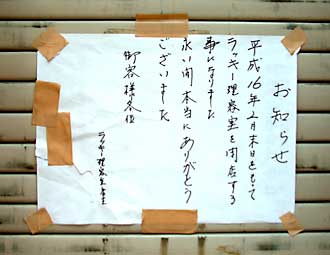 お知らせ
平成16年2月末日をもって
ラッキー理容室を閉店する
事になりました
永い間本当にありがとう
ございました
御客様各位
ラッキー理容室店主